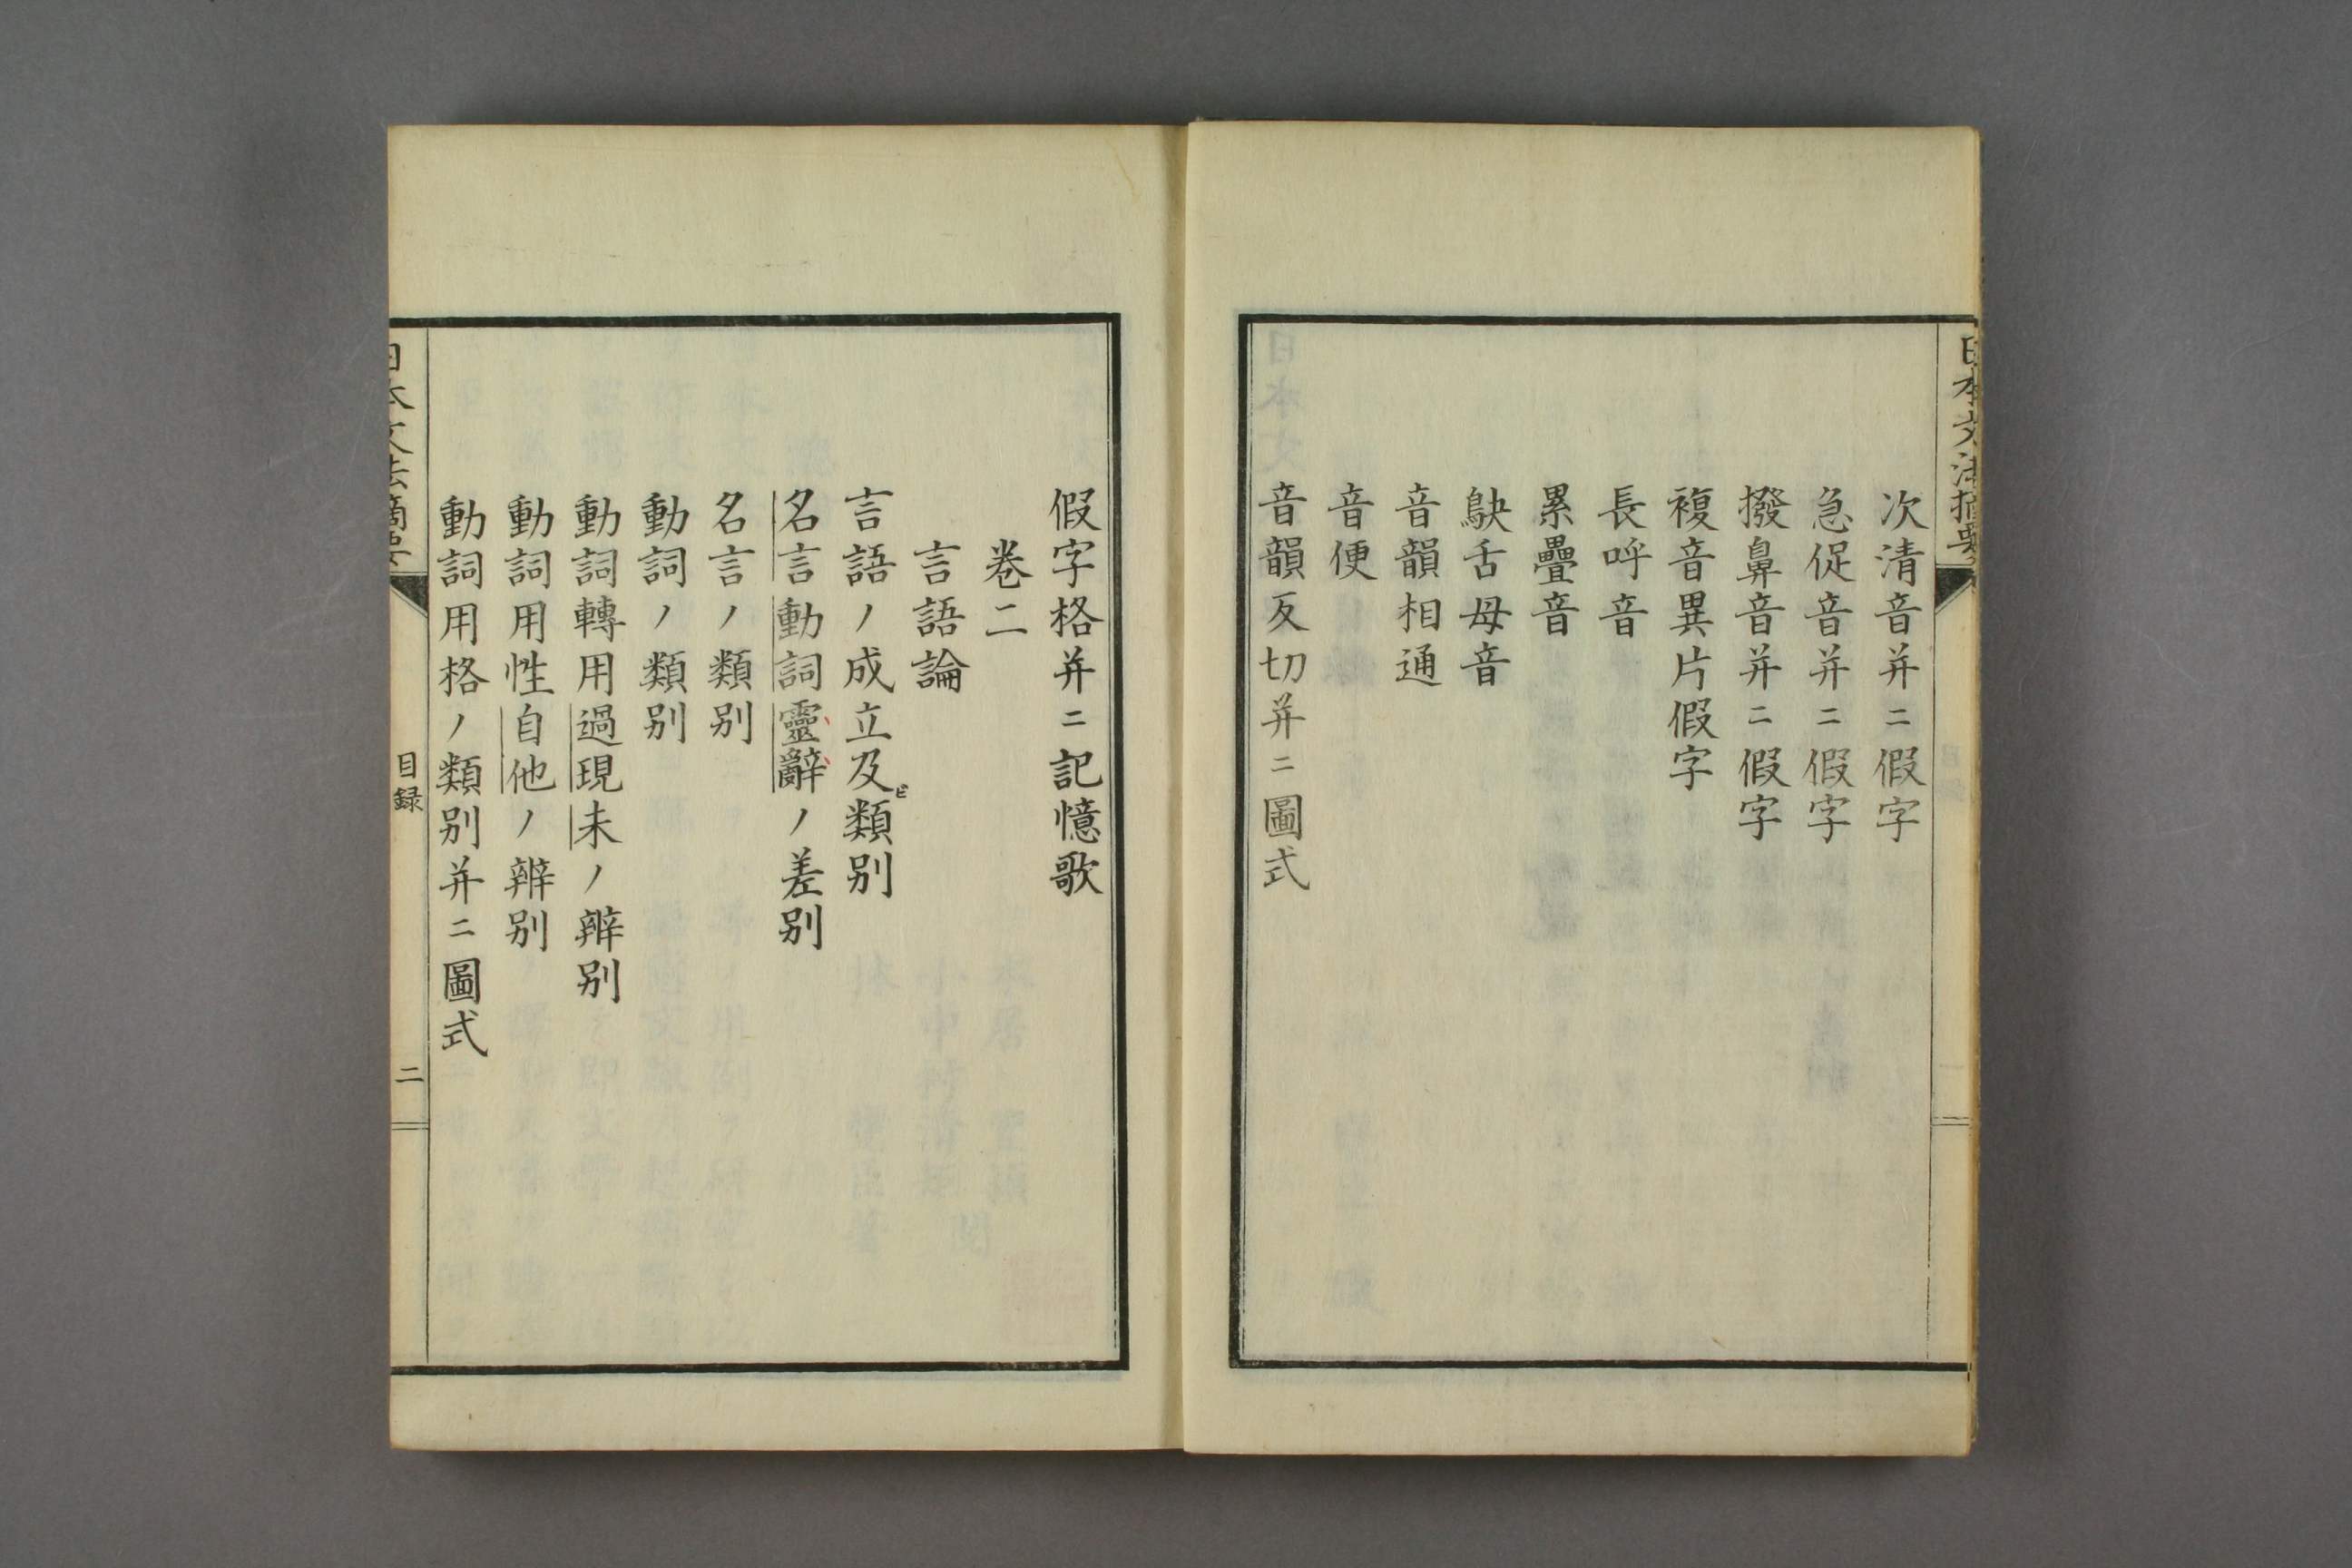 日本文法摘要
次清音并ニ假字
急促音并ニ假字
撥鼻音并ニ假字
複音異片假字
長呼音
累疊音
鴃舌母音
音韻相通
音便
音韻反切并ニ圖式
假字格并ニ記憶歌
卷二
言語論
言語ノ成立及ビ類別
名言動詞靈辭ノ差別
名言ノ類別
動詞ノ類別
動詞轉用過現未ノ辨別
動詞用性自他ノ辨別
動詞用格ノ類別并ニ圖式
日本文法摘要
目録
二